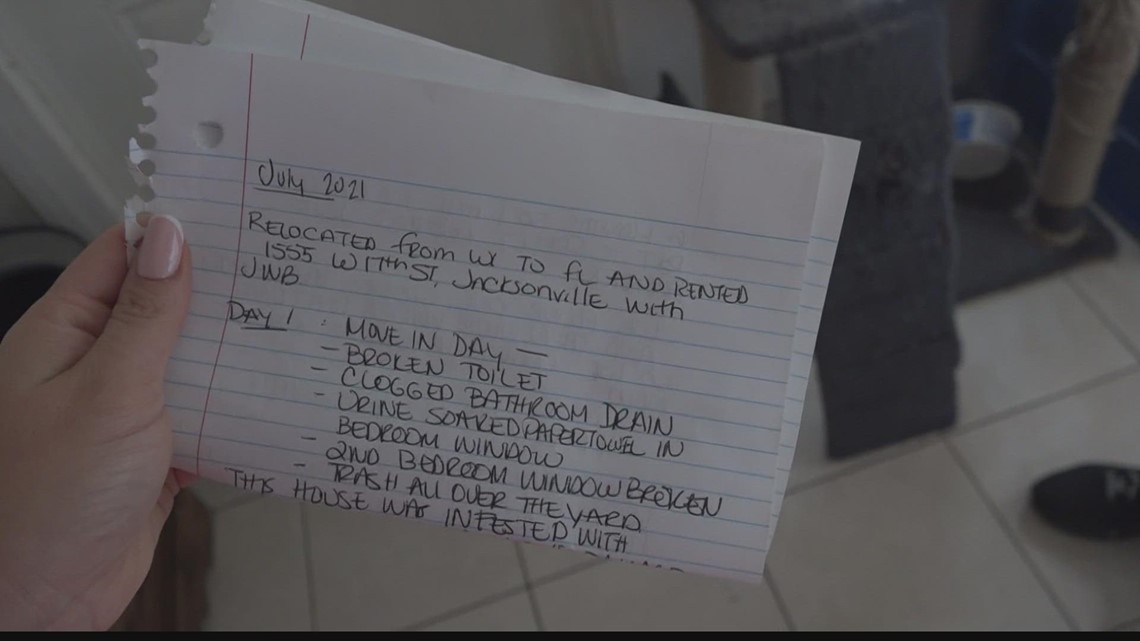 July 2021
RELOCATED from WY TO FL AND RENTED
1555 W 17th ST, Jacksonville with
JWB
DAY 1 : MOVE IN DAY —
- BROKEN TOILET
- CLOGGED BATHROOM DRAIN
- URINE SOAKED PAPERTOWEL IN
BEDROOM WINDOW
- 2ND BEDROOM WINDOW BROKEN
- TRASH ALL OVER THE YARD
THIS HOUSE WAS INFESTED WITH